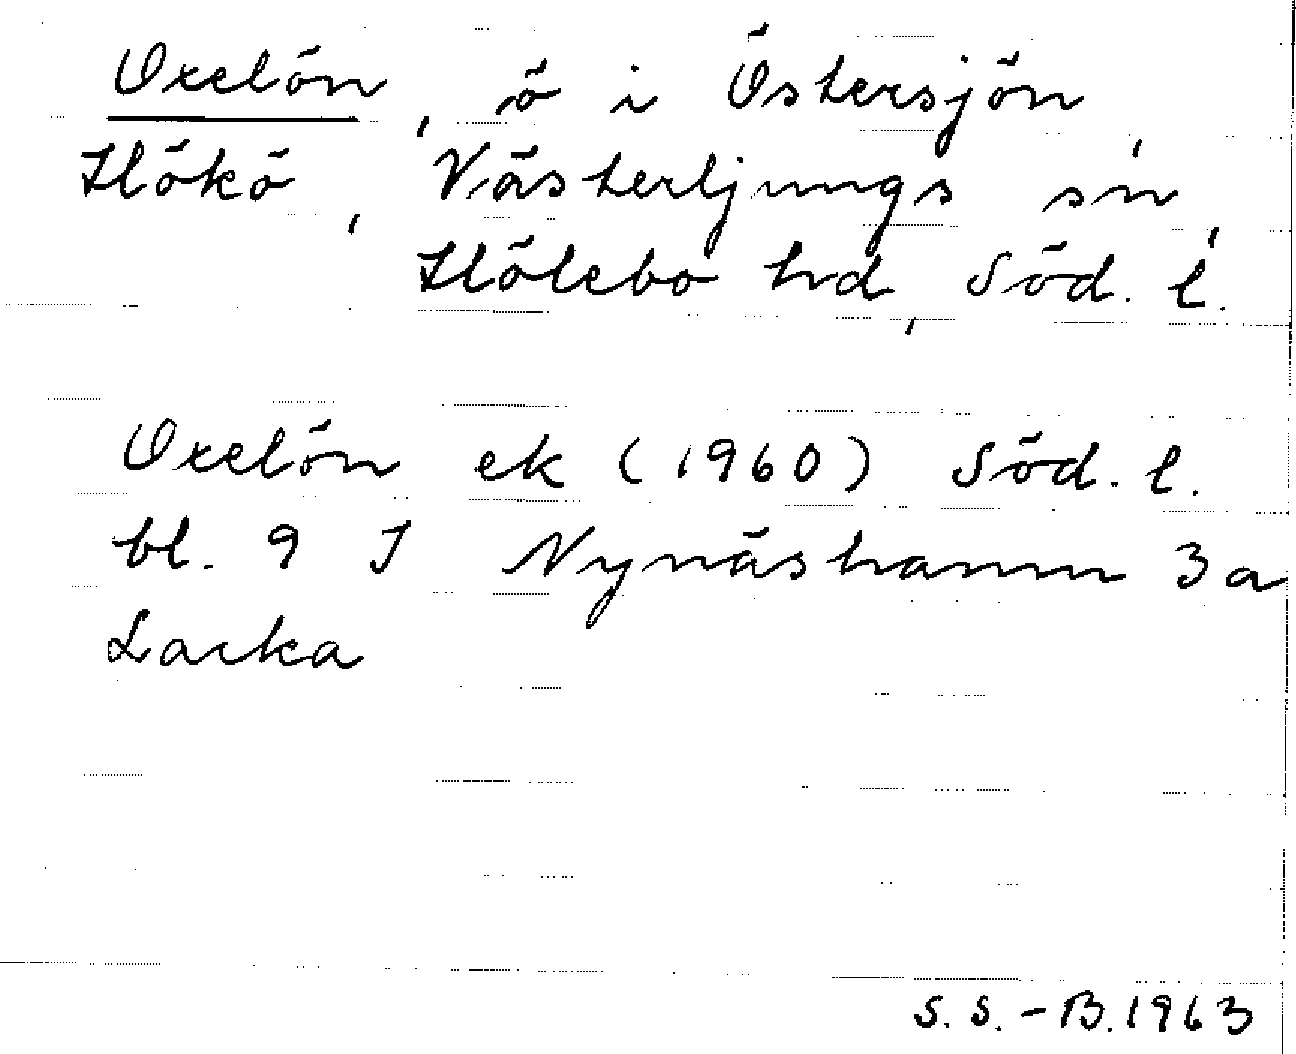 Oxelön, ö i Östersjön,
Hökö, Västerljungs sn,
Hölebo hd, Söd. l.
Oxelön ek (1960) Söd. l.
bl. 9 I Nynäshamn 3a
Lacka
S.S.-B.1963